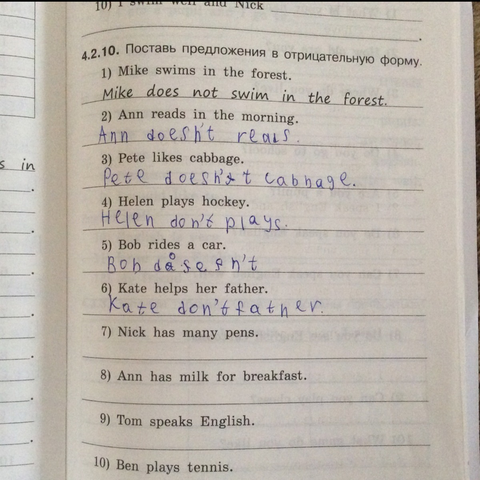 10) I swim well and Nick
4.2.10. Поставь предложения в отрицательную форму.
1) Mike swims in the forest.
Mike does not swim in the forest.
2) Ann reads in the morning.
Ann doesn't reads.
3) Pete likes cabbage.
Pete doesn't cabbage.
s in
4) Helen plays hockey.
Helen don't plays.
5) Bob rides a car.
Bob
6) Kate helps her father.
Kate don't father.
7) Nick has many pens.
8) Ann has milk for breakfast.
9) Tom speaks English.
10) Ben plays tennis.